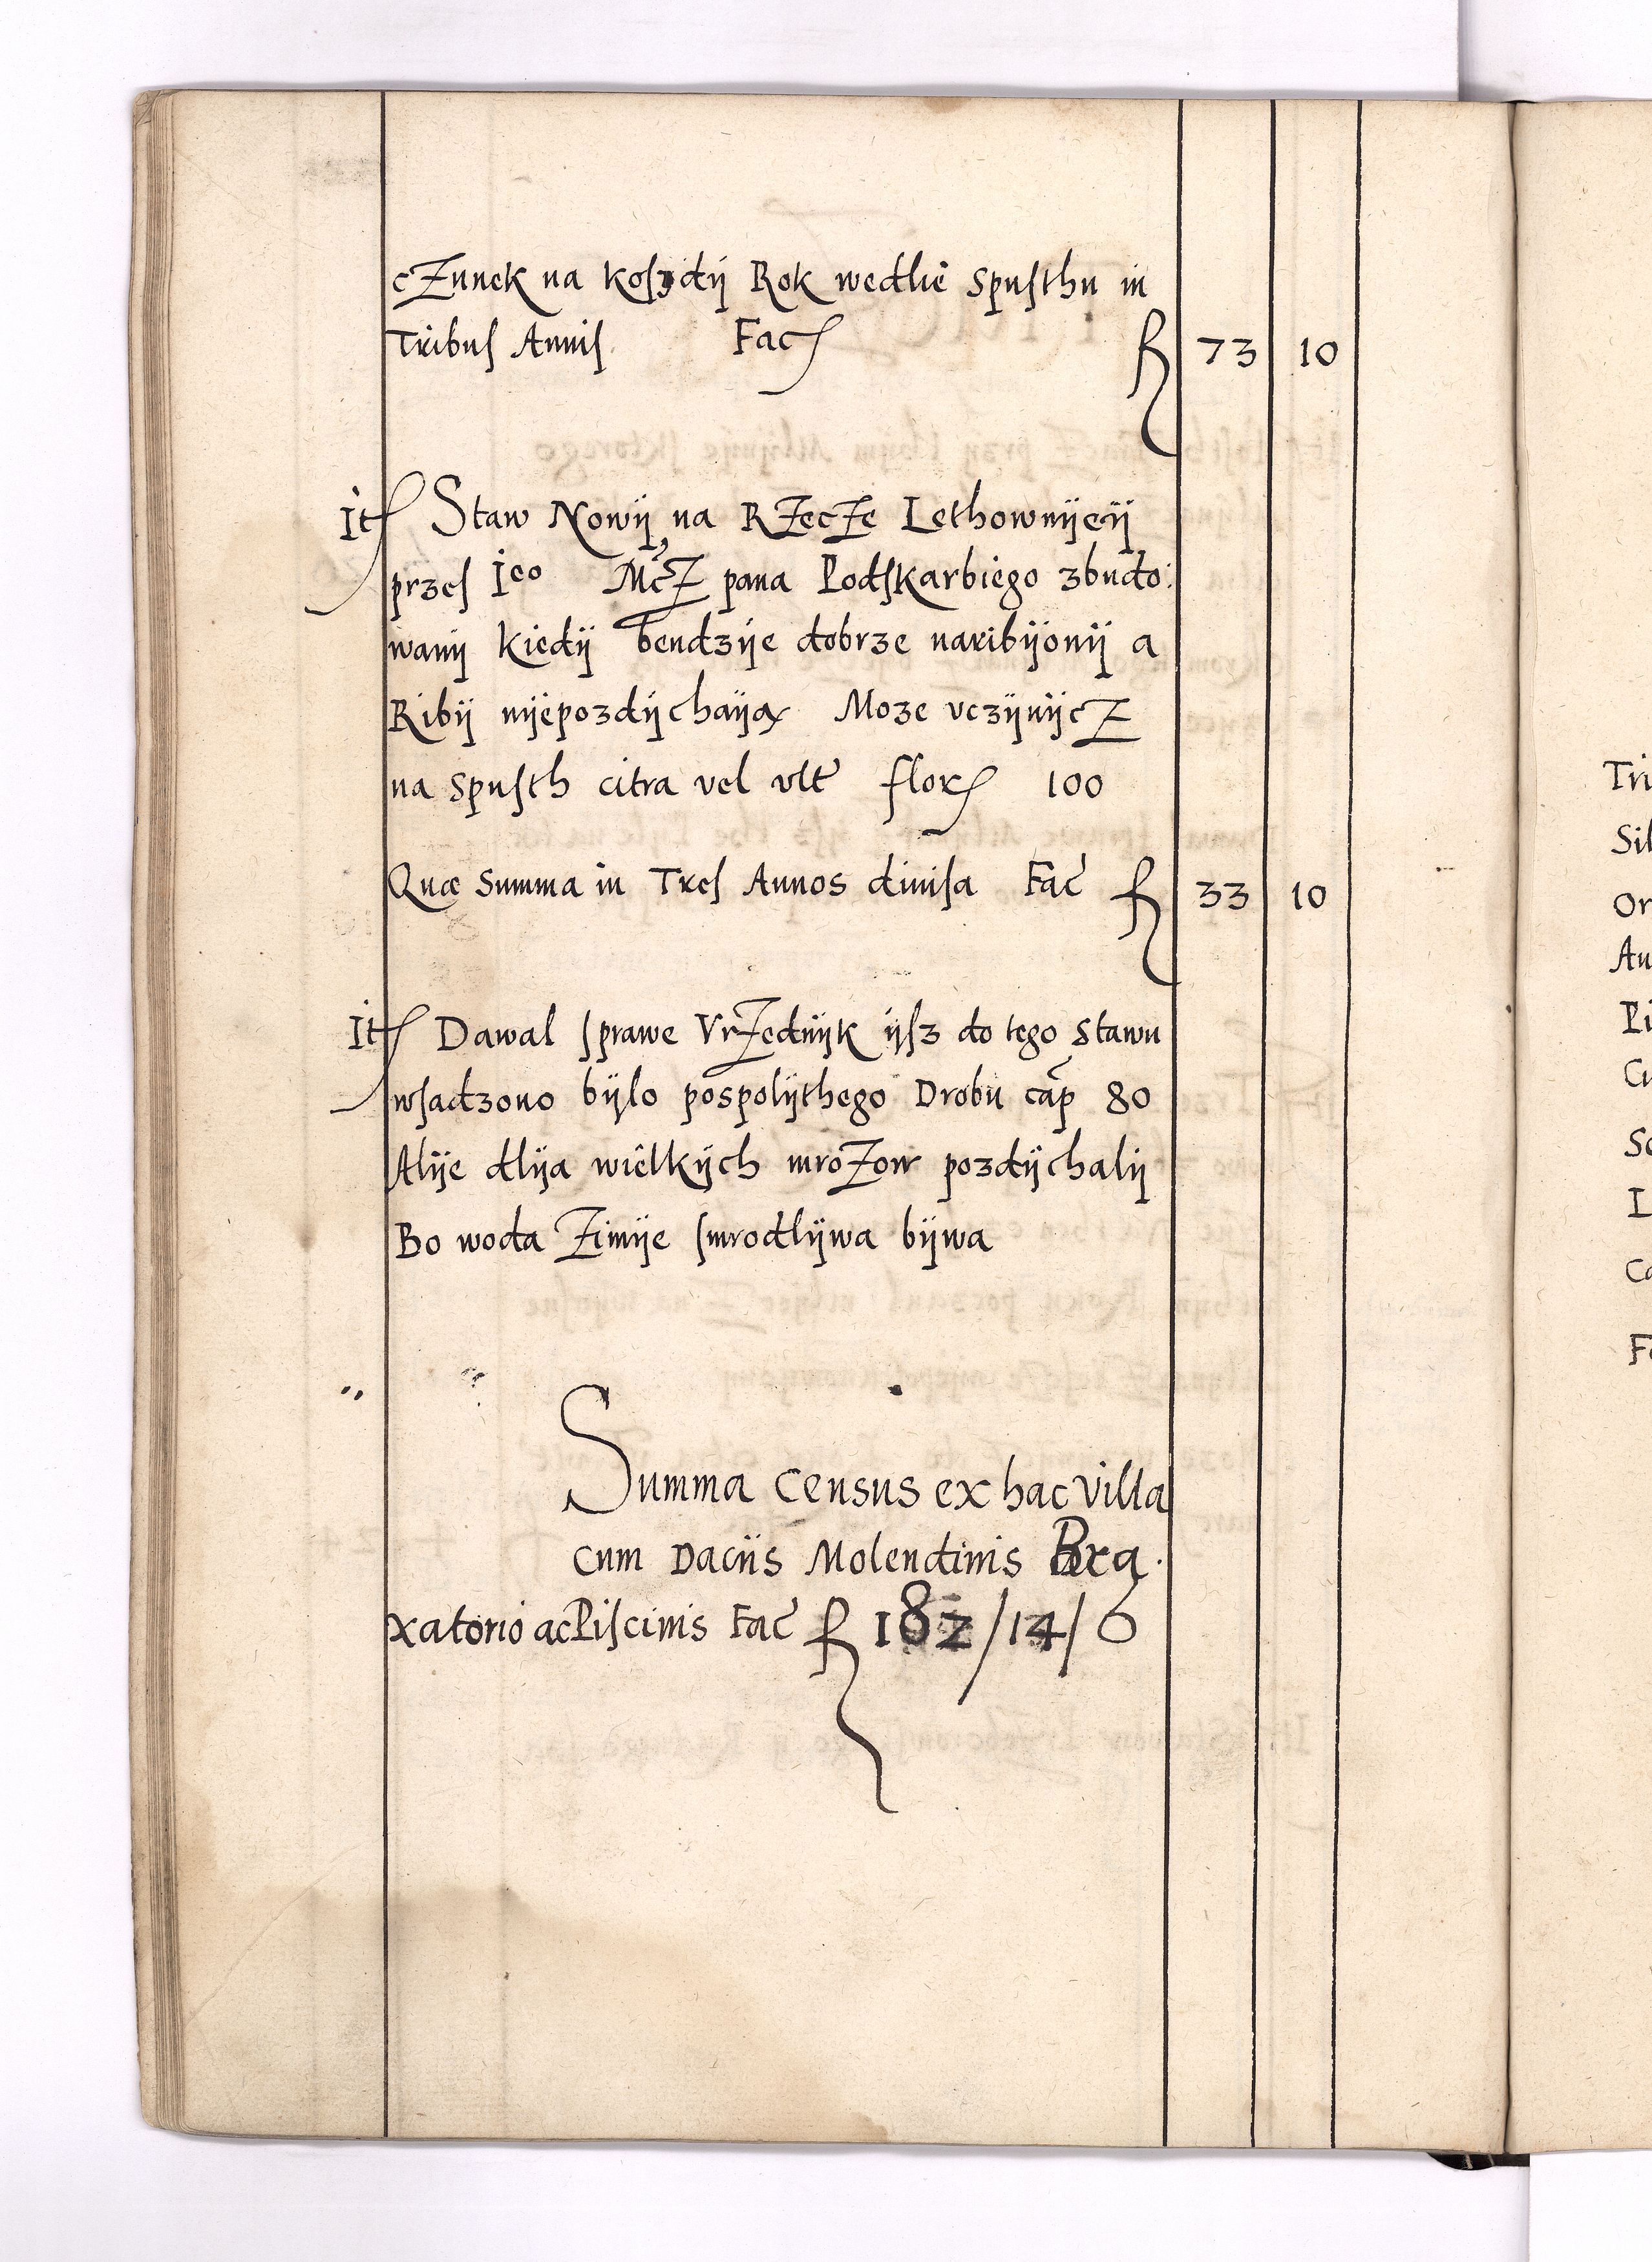 cZunek na kosʒdÿ Rok wedlie spusthu in
Tribus Annis Fac fl 73 10
It Staw Nowÿ na RZecZe Lethownÿeÿ
przes Jeo McZ pana Podskarbiego zbudo:
wanÿ kiedÿ bendzÿe dobrze naribÿonÿ a
Ribÿ nÿepozdÿchaÿą Moze vczÿnÿcZ
na spusth citra vel vlt flor 100
Quæ Summa in Tres Annos diuisa Fac fl 33 10
It Dawal sprawe VrZednÿk ÿsz do tego stawu
wsadzono bÿlo pospolÿthego Drobu cap 80
Alÿe dlÿa wielkÿch mroZow pozdÿchalÿ
Bo woda Zimÿe smrodlÿwa bÿwa
Summa Census ex hac villa
cum Daciis Molendinis Bra
xatorio ac Piscinis Fac fl 182/14/6
Tri
Sil
Or
Au
Pi
Cu
Sc
L
Ca
Fa